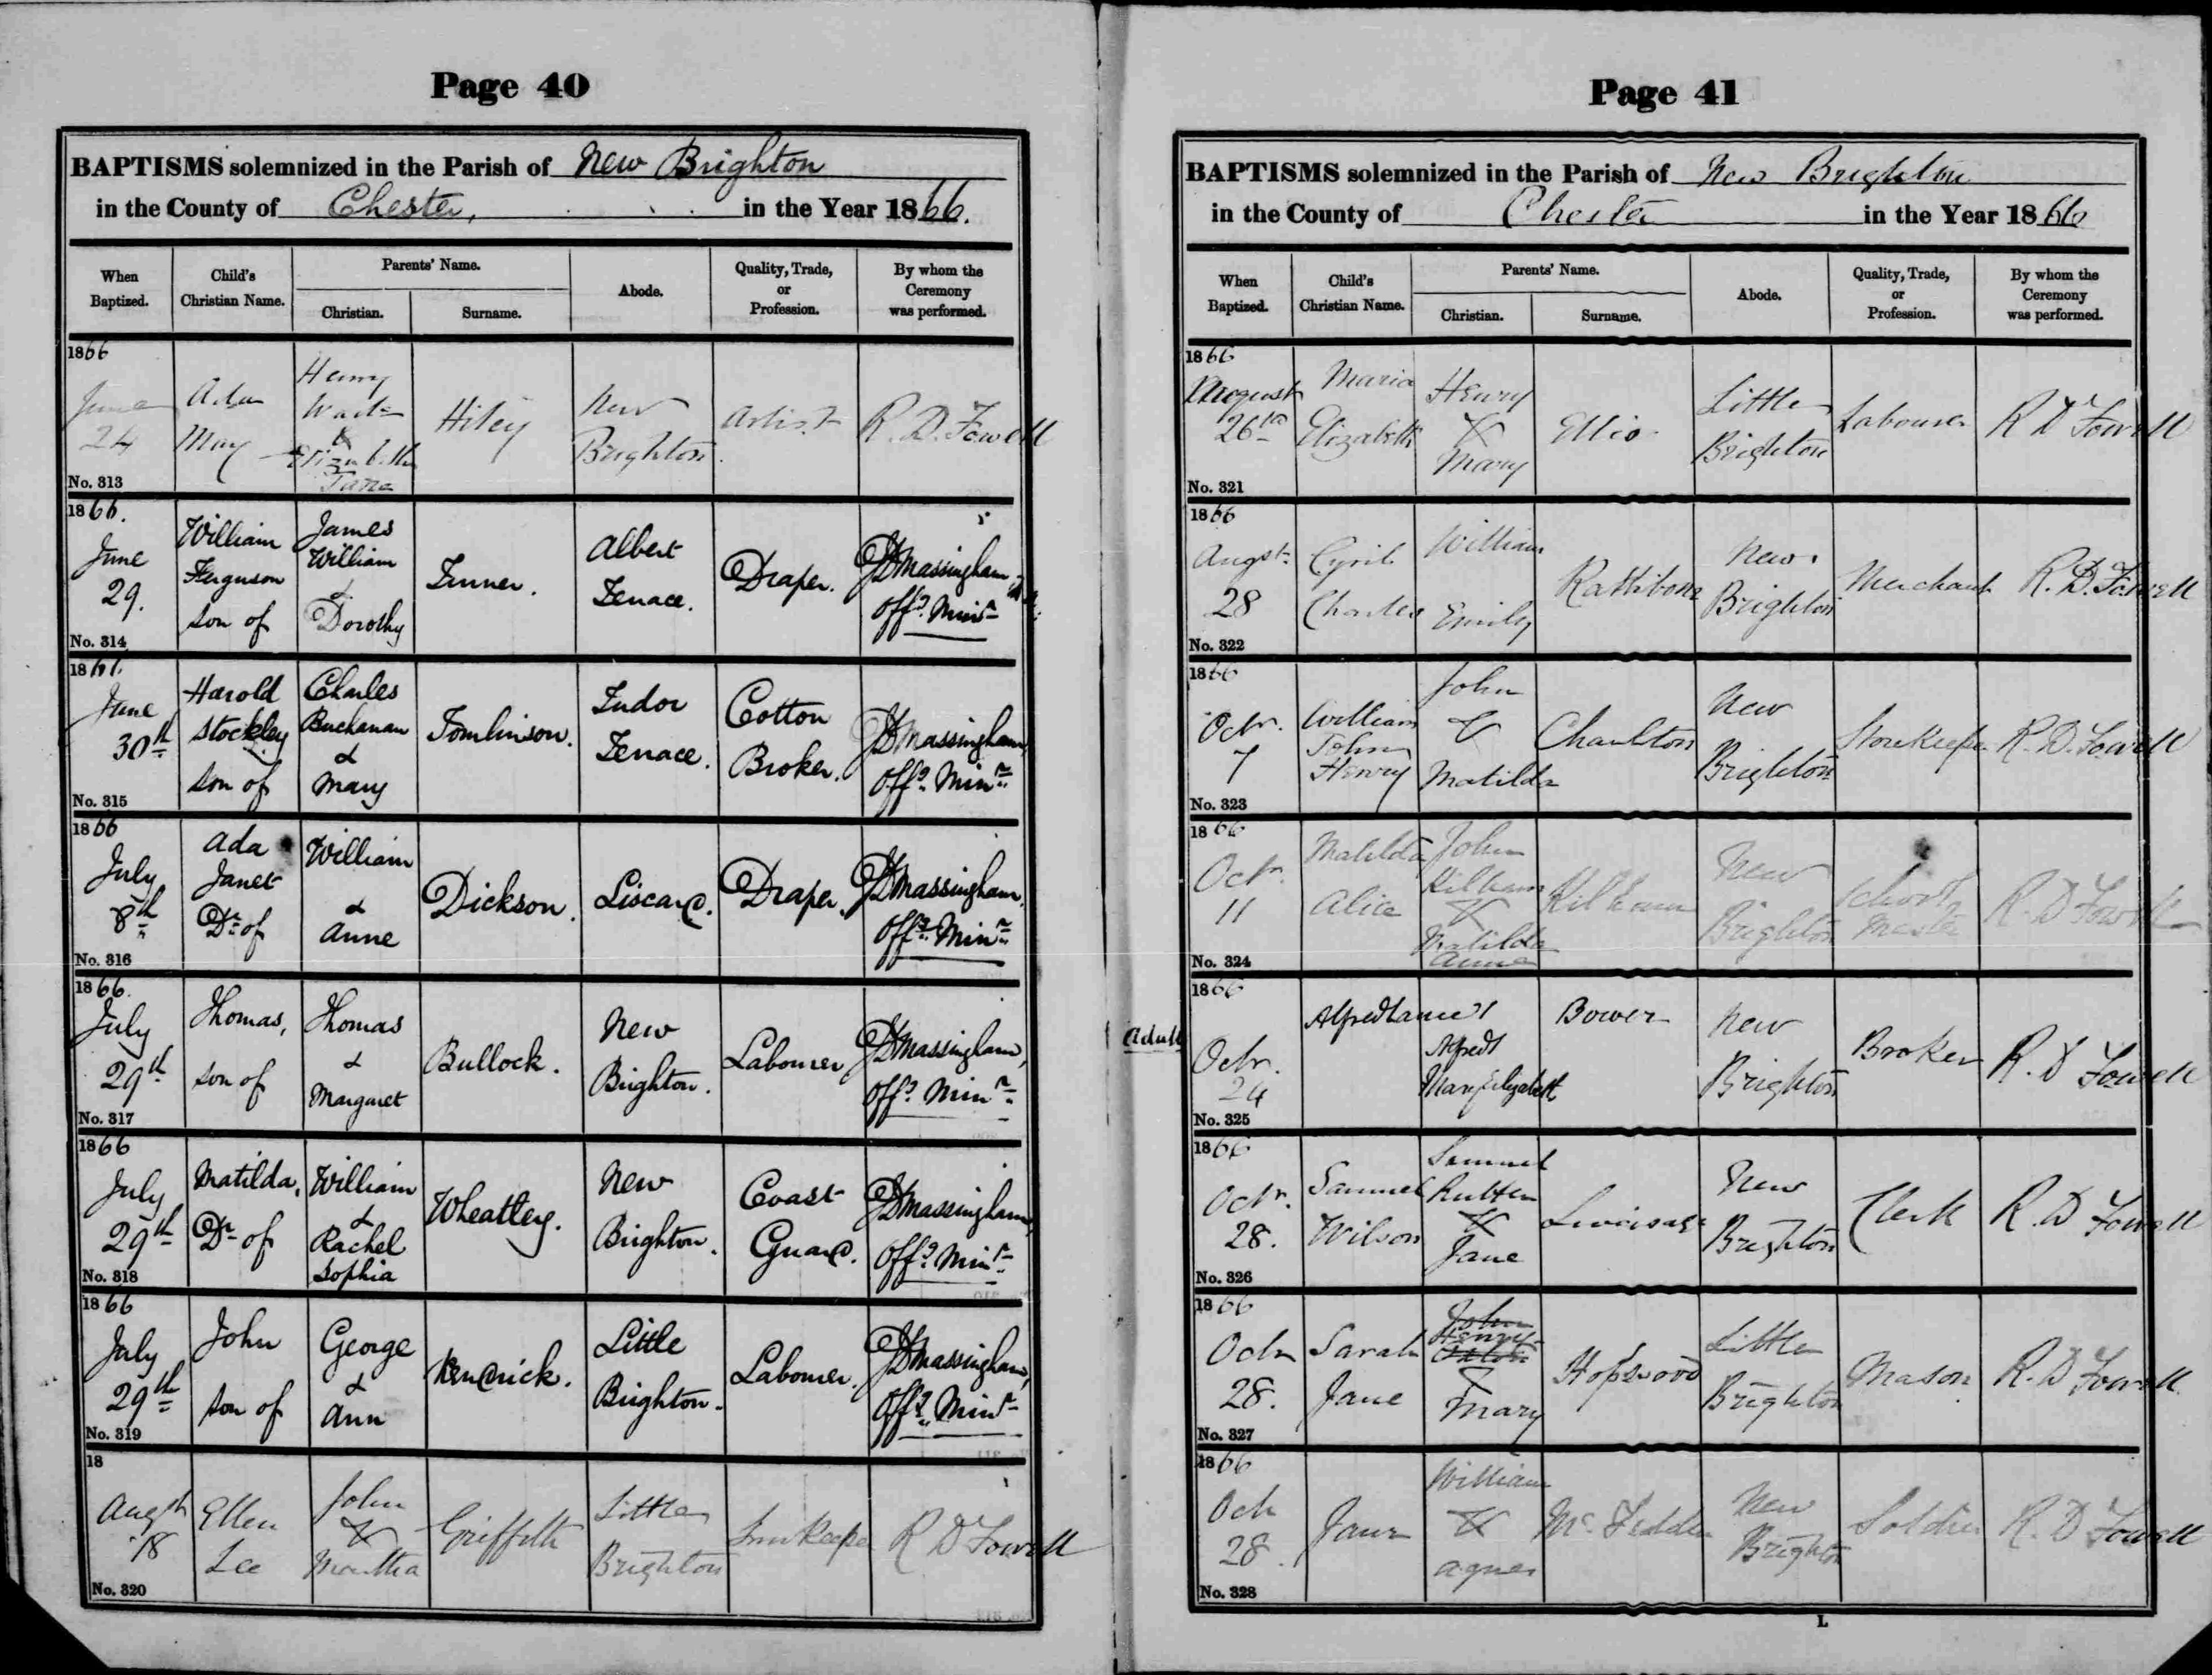 Page 40
BAPTISMS solemnized in the Parish of New Brighton
in the County of Chester, in the Year 1866.
When Baptized. Child's Christian Name. Parents' Name. Christian. Surname. Abode. Quality, Trade, or Profession. By whom the Ceremony was performed.
1866
June 24
Ada May
Henry
&
Elizabeth Jane
New Brighton
Artist
R. D. Fowell
No. 313
1866.
June 29.
William Ferguson son of
James William & Dorothy
Albert Terrace.
Draper.
JD Massingham
Offg. Minr
No. 314
1866.
June 30th
Harold Stockley son of
Charles Buchanan & Mary
Tomlinson.
Tudor Terrace.
Cotton Broker.
JD Massingham,
Offg. Minr
No. 315
1866
July 8th
Ada Janet Dr of
William & Anne
Dickson.
Liscard.
Draper.
JD Massingham,
Offg. Minr
No. 316
1866.
July 29th
Thomas, son of
Thomas & Margaret
Bullock.
New Brighton.
Labourer
JD Massingham,
Offg. Minr
No. 317
1866
July 29th
Matilda, Dr of
William & Rachel Sophia
Wheatley.
New Brighton.
Coast Guard.
JD Massingham,
Offg. Minr
No. 318
1866
July 29th
John son of
George & Ann
Kendrick.
Little Brighton.
Labourer.
JD Massingham,
Offg. Minr
No. 319
18
Augst 18
Ellen Lee
John & Martha
Griffith
Little Brighton
Innkeeper
R D Fowell
No. 320
Page 41
BAPTISMS solemnized in the Parish of New Brighton
in the County of Chester in the Year 1866
When Baptized. Child's Christian Name. Parents' Name. Christian. Surname. Abode. Quality, Trade, or Profession. By whom the Ceremony was performed.
1866
August 26th
Maria Elizabeth
Henry & Mary
Ellis
Little Brighton
Labourer
R D Fowell
No. 321
1866
Augst 28
Cyril Charles
William Emily
Rathbone
New Brighton
Merchant
R. D. Fowell
No. 322
1866
Octr. 7
William John Henry
John & Matilda
Charlton
New Brighton
Storekeeper
R. D. Fowell
No. 323
1866
Octr. 11
Matilda Alice
John William & Matilda Anne
Kilham
New Brighton
School Master
R. D Fowell
No. 324
1866
Adult
Octr. 24
Alfred
Alfred Mary Elizabeth
Bower
New Brighton
Broker
R. D Fowell
No. 325
1866
Octr. 28.
Samuel Wilson
Samuel & Jane
New Brighton
Clerk
R. D Fowell
No. 326
1866
Octr 28.
Sarah Jane
John Henry & Mary
Hopwood
Little Brighton
Mason
R. D Fowell
No. 327
1866
Oct 28.
Jane
William & Agnes
New Brighton
Soldier
R. D Fowell
No. 328
L